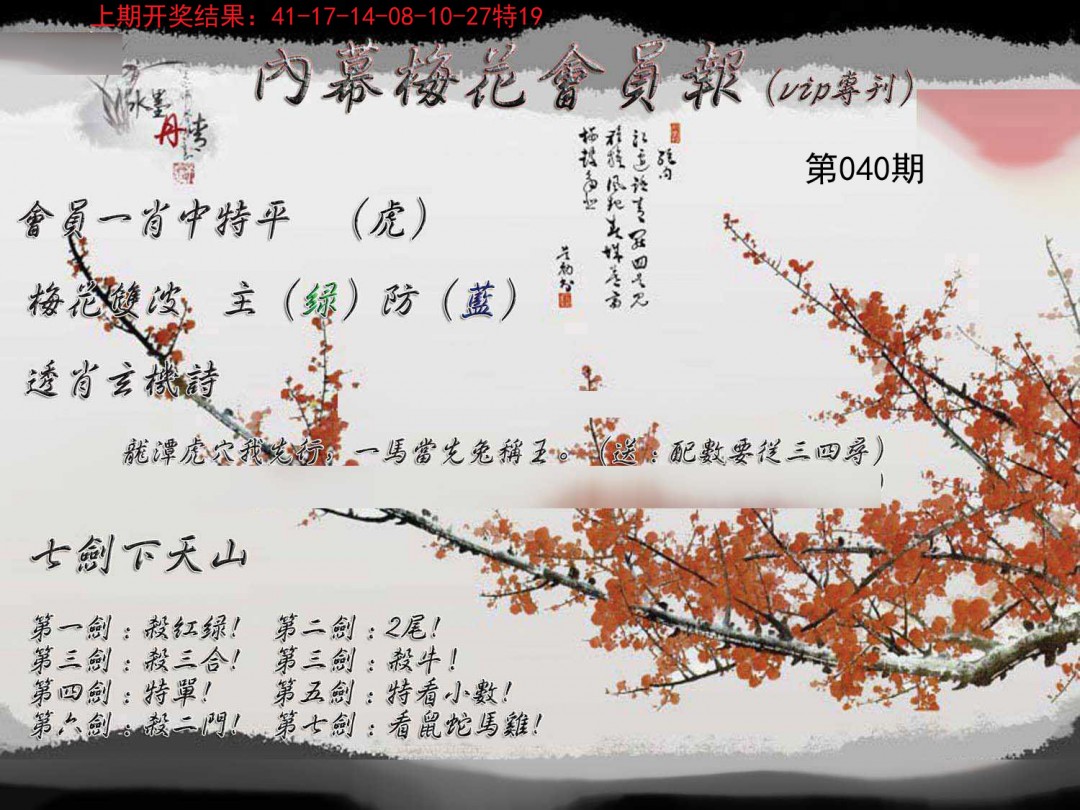 上期开奖结果：41-17-14-08-10-27特19
內幕梅花會員報（vip專刊）
水墨丹情
第040期
會員一肖中特平 （虎）
梅花雙波 主（緑）防（藍）
透肖玄機詩
龍潭虎穴我先行，一馬當先兔稱王。（送：配數要從三四尋）
七劍下天山
第一劍：殺紅緑！ 第二劍：2尾！
第三劍：殺三合！ 第三劍：殺牛！
第四劍：特單！ 第五劍：特看小數！
第六劍：殺二門！ 第七劍：看鼠蛇馬雞！